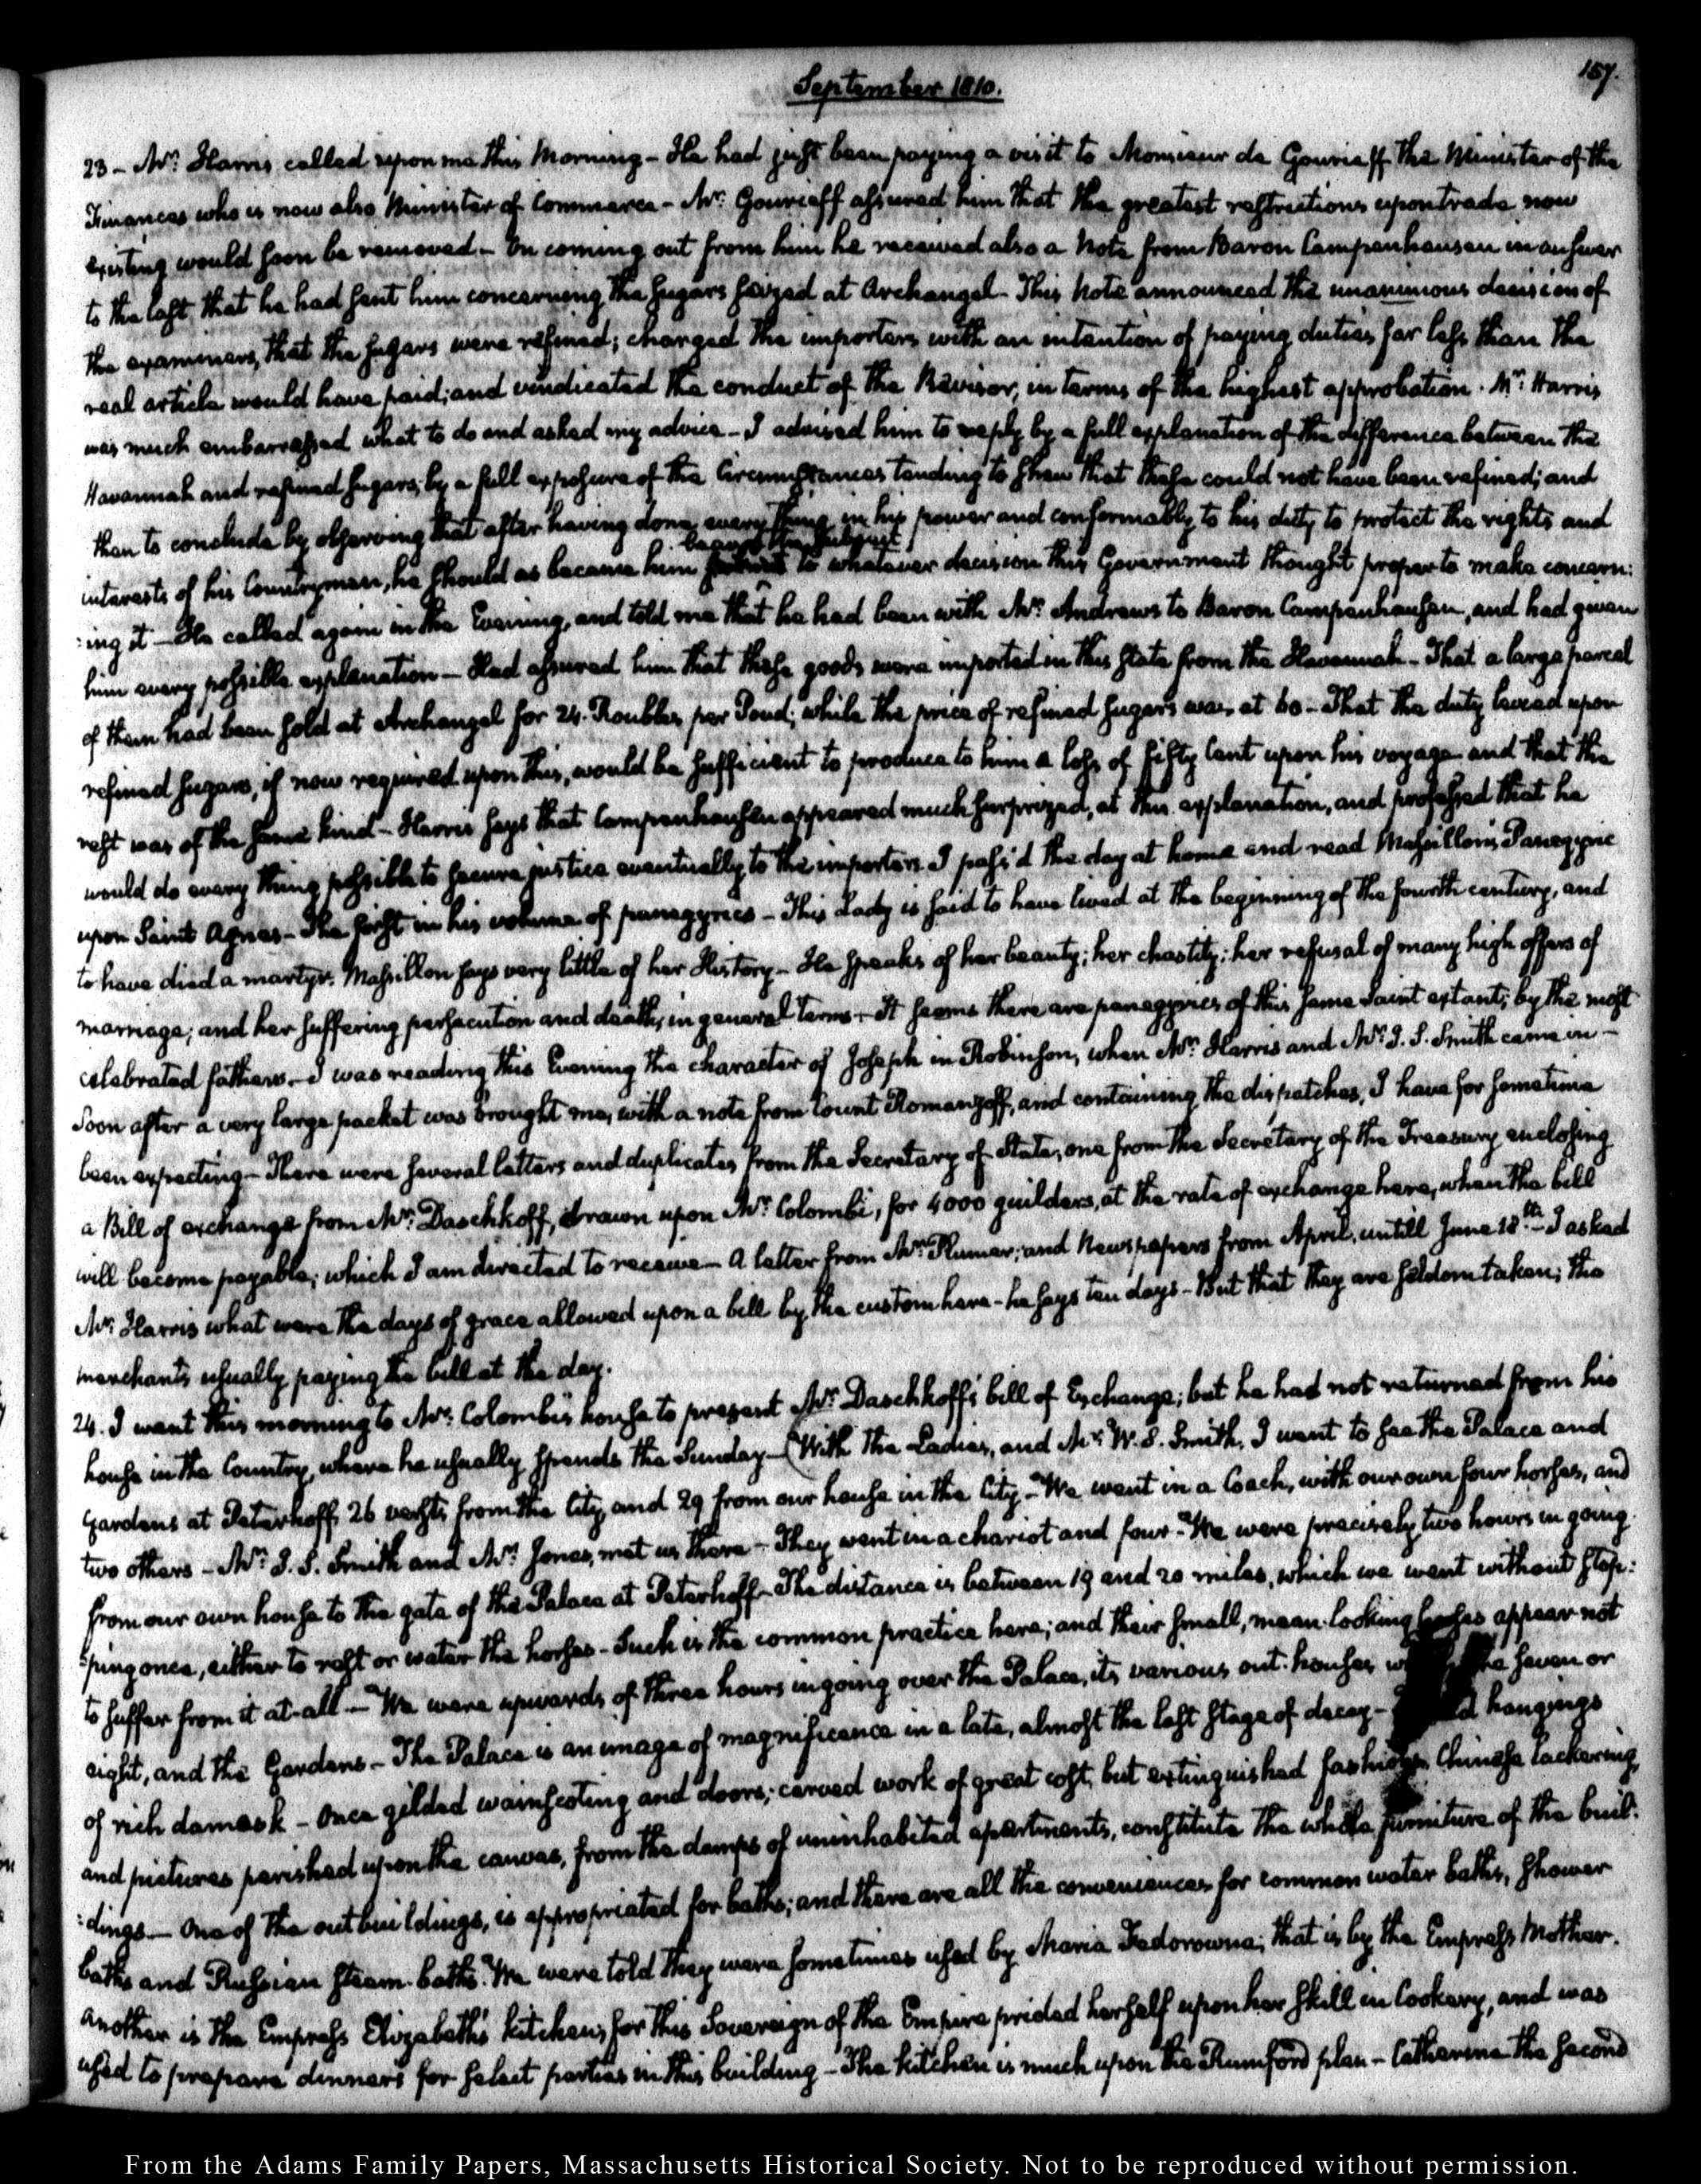 September 1810.
157.
23 – Mr: Harris called upon me this Morning – He had just been paying a visit to Monsieur de Gourieff the Minister of the
Finances, who is now also Minister of Commerce – Mr: Gourieff assured him that the greatest restrictions upon trade now
existing would soon be removed – On coming out from him he received also a Note from Baron Campenhausen in answer
to the last that he had sent him concerning the sugars seized at Archangel – This Note announced the unanimous decision of
the examiners, that the sugars were refined; charged the importers with an intention of paying duties far less than the
real article would have paid; and vindicated the conduct of the Revisor, in terms of the highest approbation. Mr: Harris
was much embarrassed what to do and asked my advice – I advised him to reply by a full explanation of the difference between the
Havannah and refined sugars; by a full exposure of the Circumstances tending to shew that these could not have been refined; and
then to conclude by observing that after having done every thing in his power and conformably to his duty to protect the rights and
interests of his Countrymen, he should as became him leave the subject to whatever decision this Government thought proper to make concern:
:ing it – He called again in the Evening, and told me that he had been with Mr: Andrews to Baron Campenhausen, and had given
him every possible explanation – Had assured him that these goods were imported in this state from the Havannah – That a large parcel
of them had been sold at Archangel for 24. Roubles per Poud; while the price of refined sugars was at 60 – That the duty levied upon
refined sugars, if now required upon this, would be sufficient to produce to him a loss of fifty Cent upon his voyage and that the
rest was of the same kind – Harris says that Campenhausen appeared much surprized, at this explanation, and professed that he
would do every thing possible to secure justice eventually to the importers. I pass'd the day at home and read Massillon's Panegyric
upon Saint Agnes – The first in his volume of panegyrics – This Lady is said to have lived at the beginning of the fourth century, and
to have died a martyr. Massillon says very little of her History – He speaks of her beauty; her chastity; her refusal of many high offers of
marriage; and her suffering persecution and death, in general terms – It seems there are panegyrics of this same Saint extant, by the most
celebrated fathers – I was reading this Evening the character of Joseph in Robinson, when Mr: Harris and Mr: J. S. Smith came in –
Soon after a very large packet was brought me, with a note from Count Romanzoff, and containing the dispatches, I have for sometime
been expecting – There were several letters and duplicates from the Secretary of State, one from the Secretary of the Treasury enclosing
a Bill of exchange from Mr: Daschkoff, drawn upon Mr: Colombi, for 4000 guilders, at the rate of exchange here, when the bill
will become payable; which I am directed to receive – A letter from Mr: Plumer; and Newspapers from April, untill June 18th – I asked
Mr: Harris what were the days of grace allowed upon a bill by the custom here – he says ten days – But that they are seldom taken; the
merchants usually paying the bill at the day.
24. I went this morning to Mr: Colombi's house to present Mr: Daschkoff's bill of Exchange; but he had not returned from his
house in the Country, where he usually spends the Sunday – (With the Ladies, and Mr: W. S. Smith, I went to see the Palace and
Gardens at Peterhoff, 26 versts from the City, and 29 from our house in the City – We went in a Coach, with our own four horses, and
two others – Mr: J. S. Smith and Mr: Jones, met us there – They went in a chariot and four – We were precisely two hours in going
from our own house to the gate of the Palace at Peterhoff – The distance is between 19 and 20 miles, which we went without stop:
:ping once, either to rest or water the horses – Such is the common practice here; and their small, mean-looking horses appear not
to suffer from it at-all – We were upwards of three hours in going over the Palace, its various out-houses, seven or
eight, and the Gardens – The Palace is an image of magnificence in a late, almost the last stage of decay – hangings
of rich damask – Once gilded wainscoting and doors; carved work of great cost, but extinguished fashion, Chinese lackering,
and pictures perished upon the canvas, from the damps of uninhabited apartments, constitute the whole furniture of the buil:
:dings – One of the outbuildings, is appropriated for baths; and there are all the conveniences for common water baths, shower
baths and Russian steam-baths. We were told they were sometimes used by Maria Fedorowna; that is by the Empress Mother.
Another is the Empress Elizabeth's kitchen; for this Sovereign of the Empire prided herself upon her skill in Cookery, and was
used to prepare dinners for select parties in this building – The kitchen is much upon the Rumford plan – Catherine the second
From the Adams Family Papers, Massachusetts Historical Society. Not to be reproduced without permission.